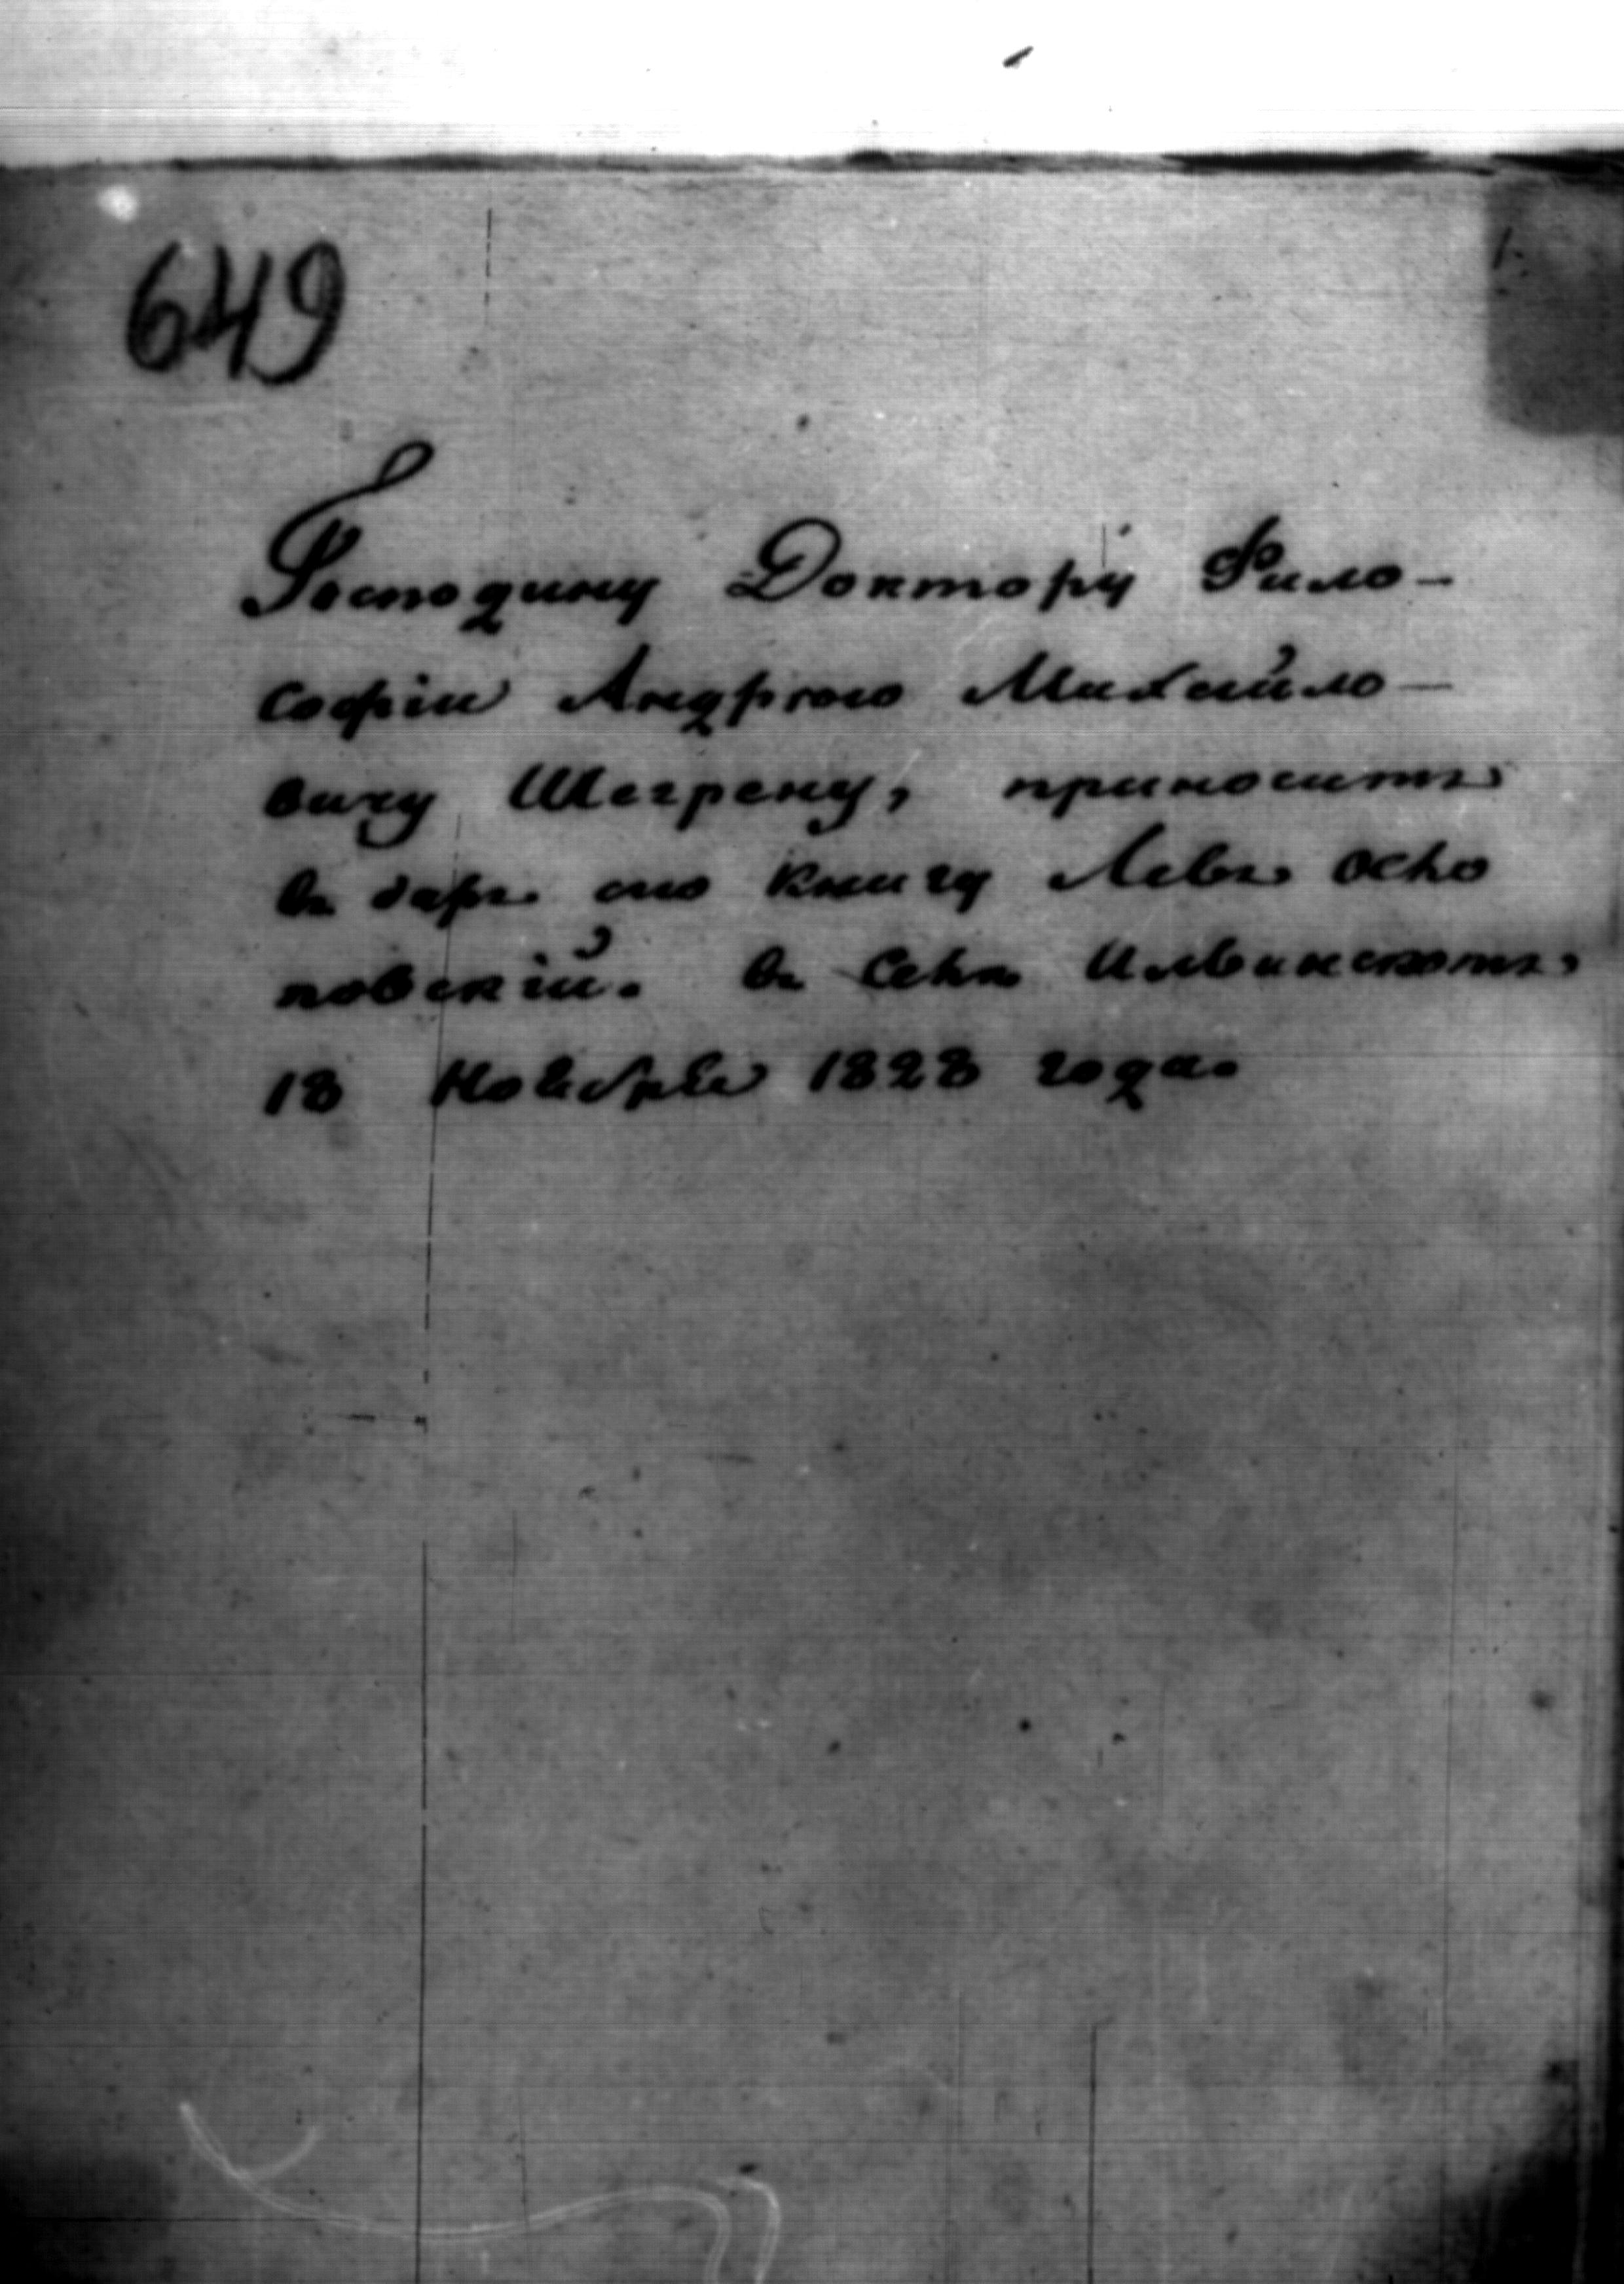 1.
649
Господину Доктору Фило-
софіи Андрѣю Михайло-
вичу Шегрену, приноситъ
въ даръ сію книгу Левъ Осно
повскій. въ Селѣ Ильинскомъ,
18 Ноября 1828 года.